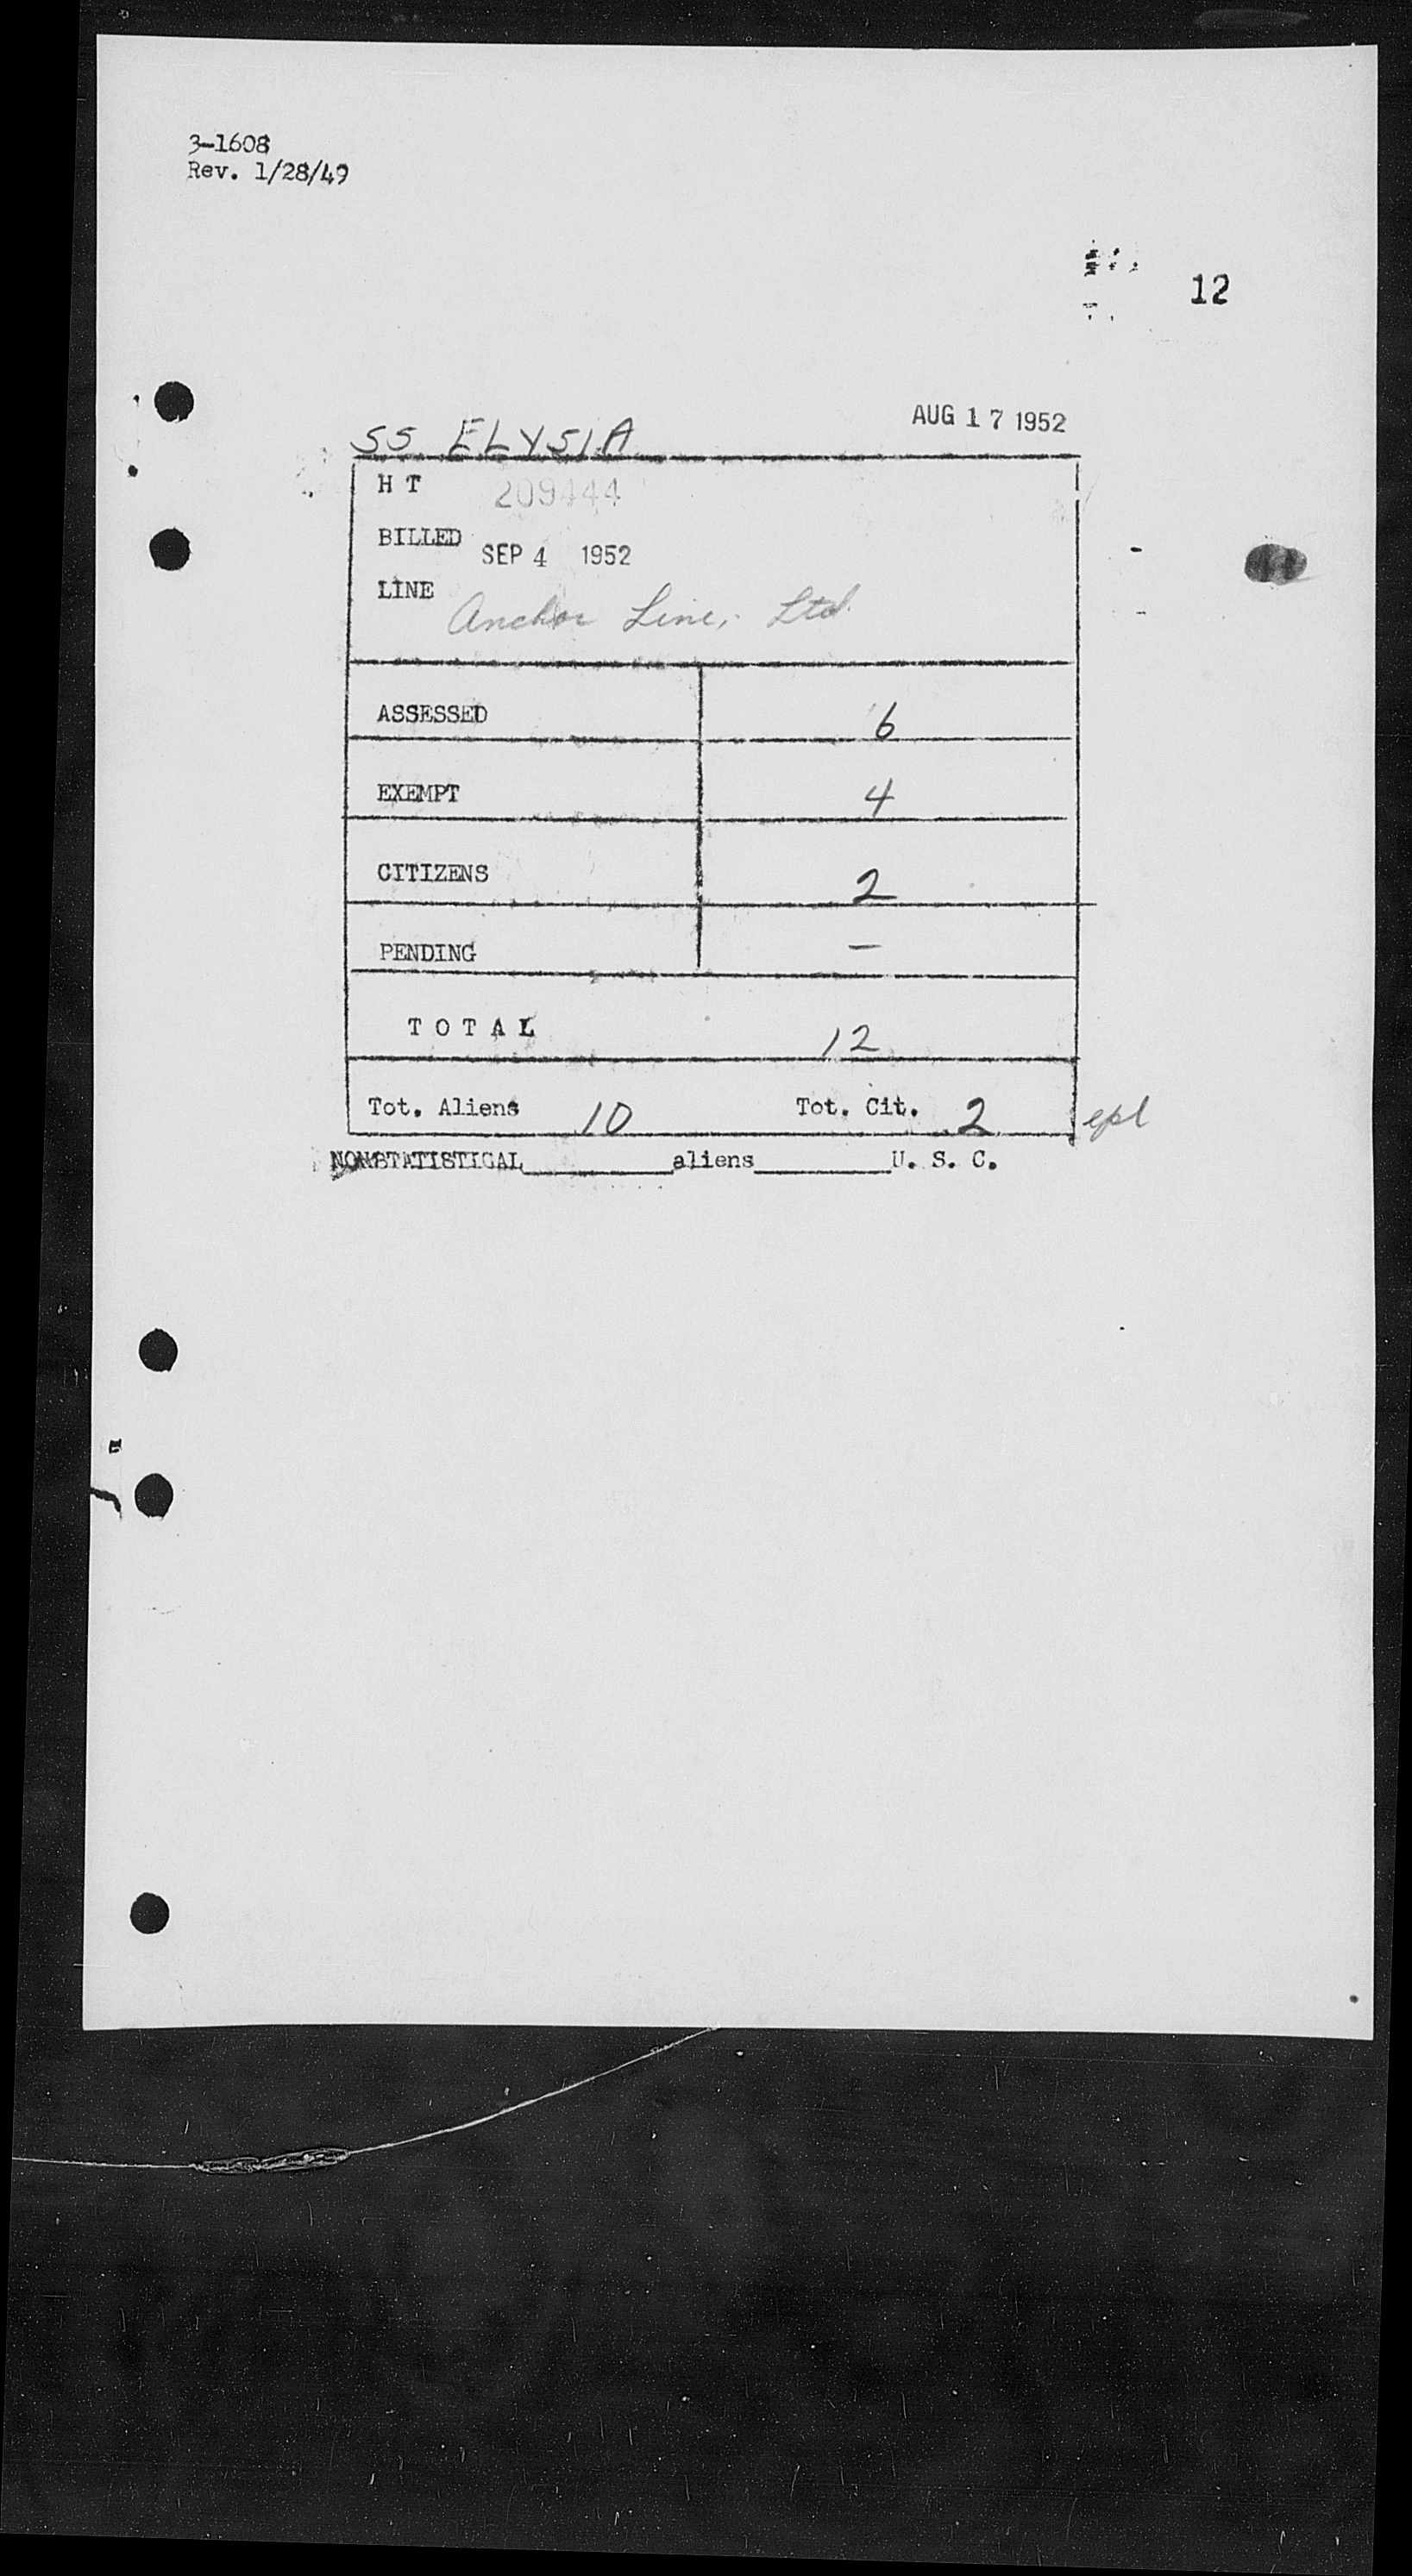 3-1608
Rev. 1/28/49
12
SS ELYSIA AUG 17 1952
H T 209444
BILLED SEP 4 1952
LINE Anchor Line, Ltd.
ASSESSED 6
EXEMPT 4
CITIZENS 2
PENDING –
T O T A L 12
Tot. Aliens 10 Tot. Cit. 2 epl
NONSTATISTICAL__________aliens__________U. S. C.